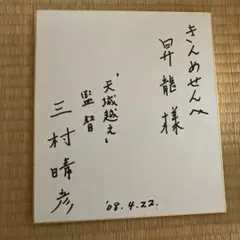 きんめせんべ
昇龍様
"天城越え"
監督
三村晴彦
'08.4.22.